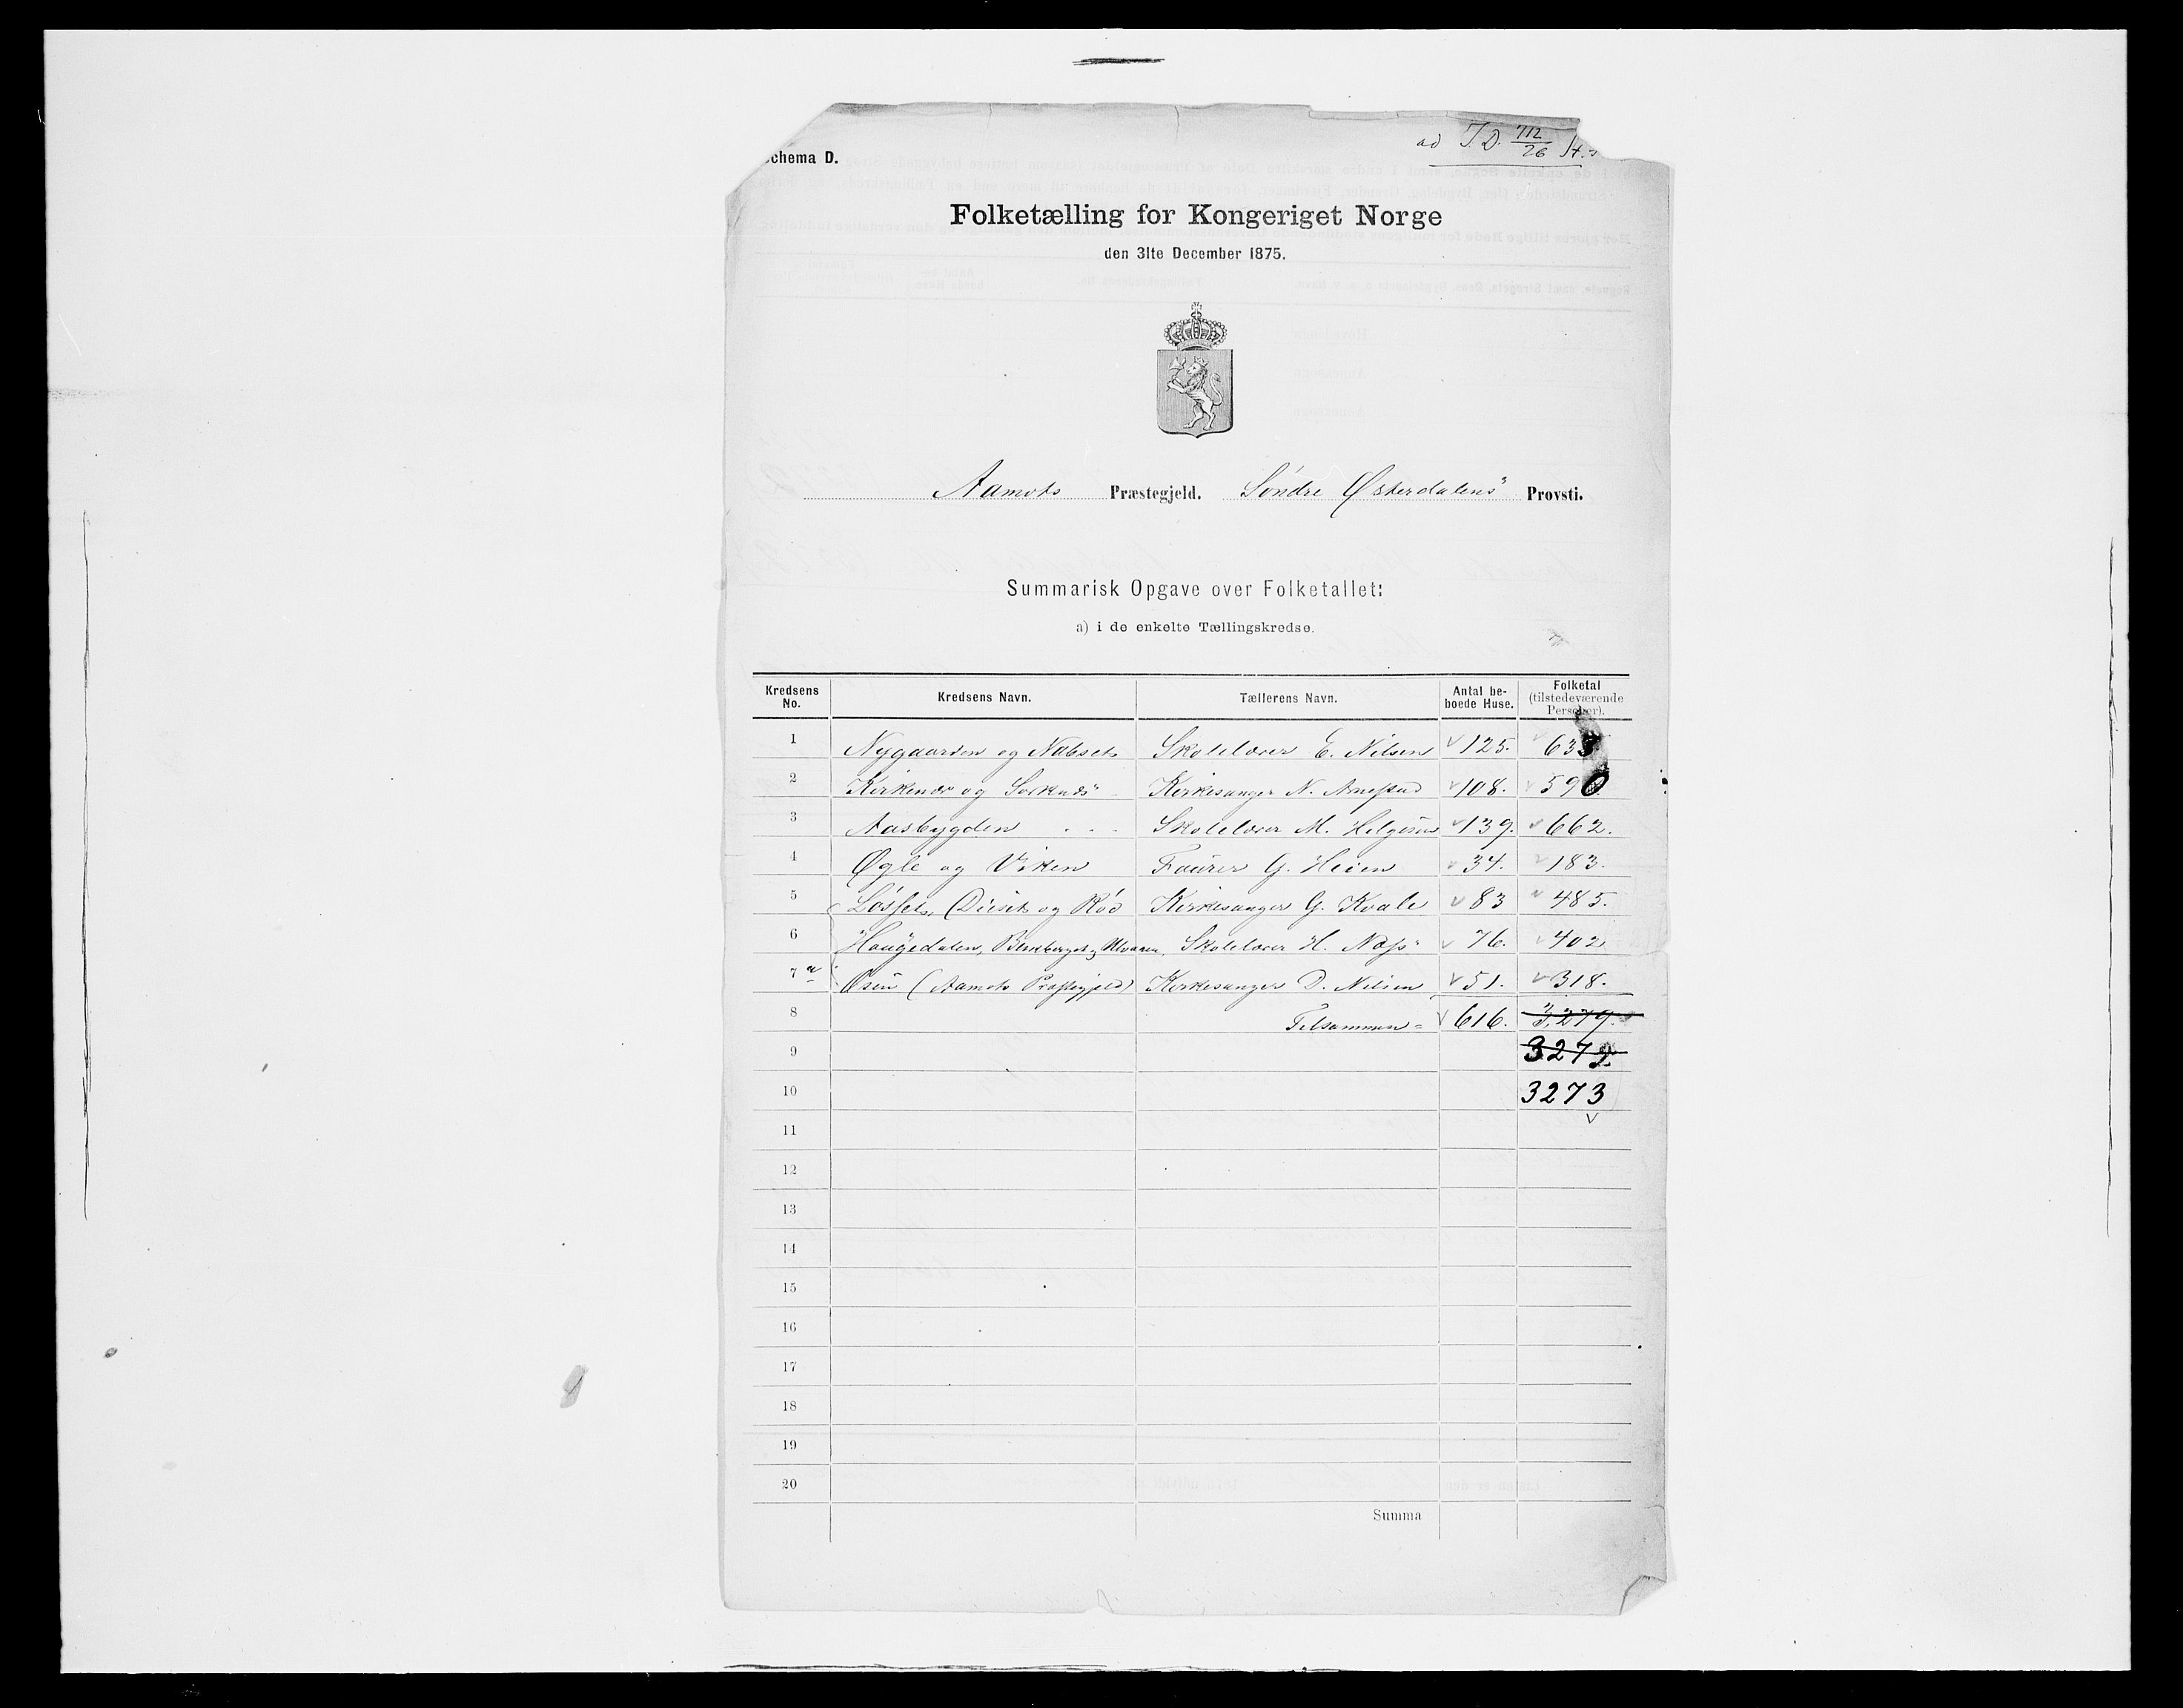 ad J.D. 712/26
chema D.
Folketælling for Kongeriget Norge
den 31te December 1875.
Aamots Præstegjeld. Søndre Østerdalens Provsti.
Summarisk Opgave over Folketallet:
a) i de enkelte Tællingskredse.
Kredsens No. Kredsens Navn. Tællerens Navn. Antal beboede Huse. Folketal (tilstedeværende Personer).
1 Nygaarden og Nabset Skolelærer E. Nilsen 125. 633
2 Kirkenær og Sorknæs Kirkesanger N. Arnestad 108. 590
3 Aasbygden . . . Skolelærer M. Helgesen 139. 662.
4 Øgle og Viken Fourer G. Heien 34. 183.
5 Løsset, Deset og Rød Kirkesanger G. Kvale 83 485.
6 Haugedalen, Bækberget og Ulvaaen. Skolelærer H. Næss 76. 402
7 a Osen (Aamots Præstegjeld) Kirkesanger D. Nilsen 51. 318.
8 Tilsammen = 616. 3,279.
9 3272
10 3273
11
12
13
14
15
16
17
18
19
20
Summa